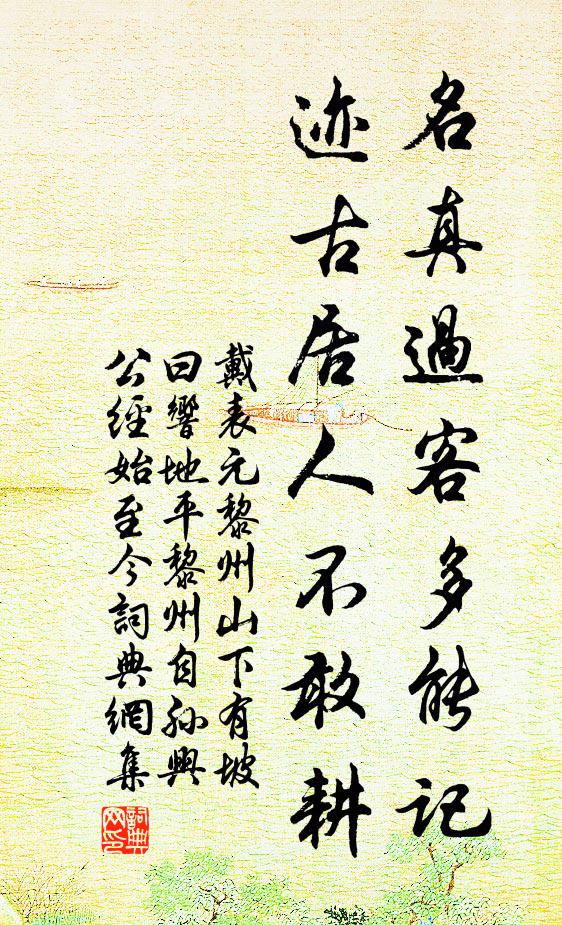 名真過客多能记
迹古居人不敢耕
戴表元黎州山下有坡
曰響地平黎州自孙興
公經始至今詞典網集
詞典網印